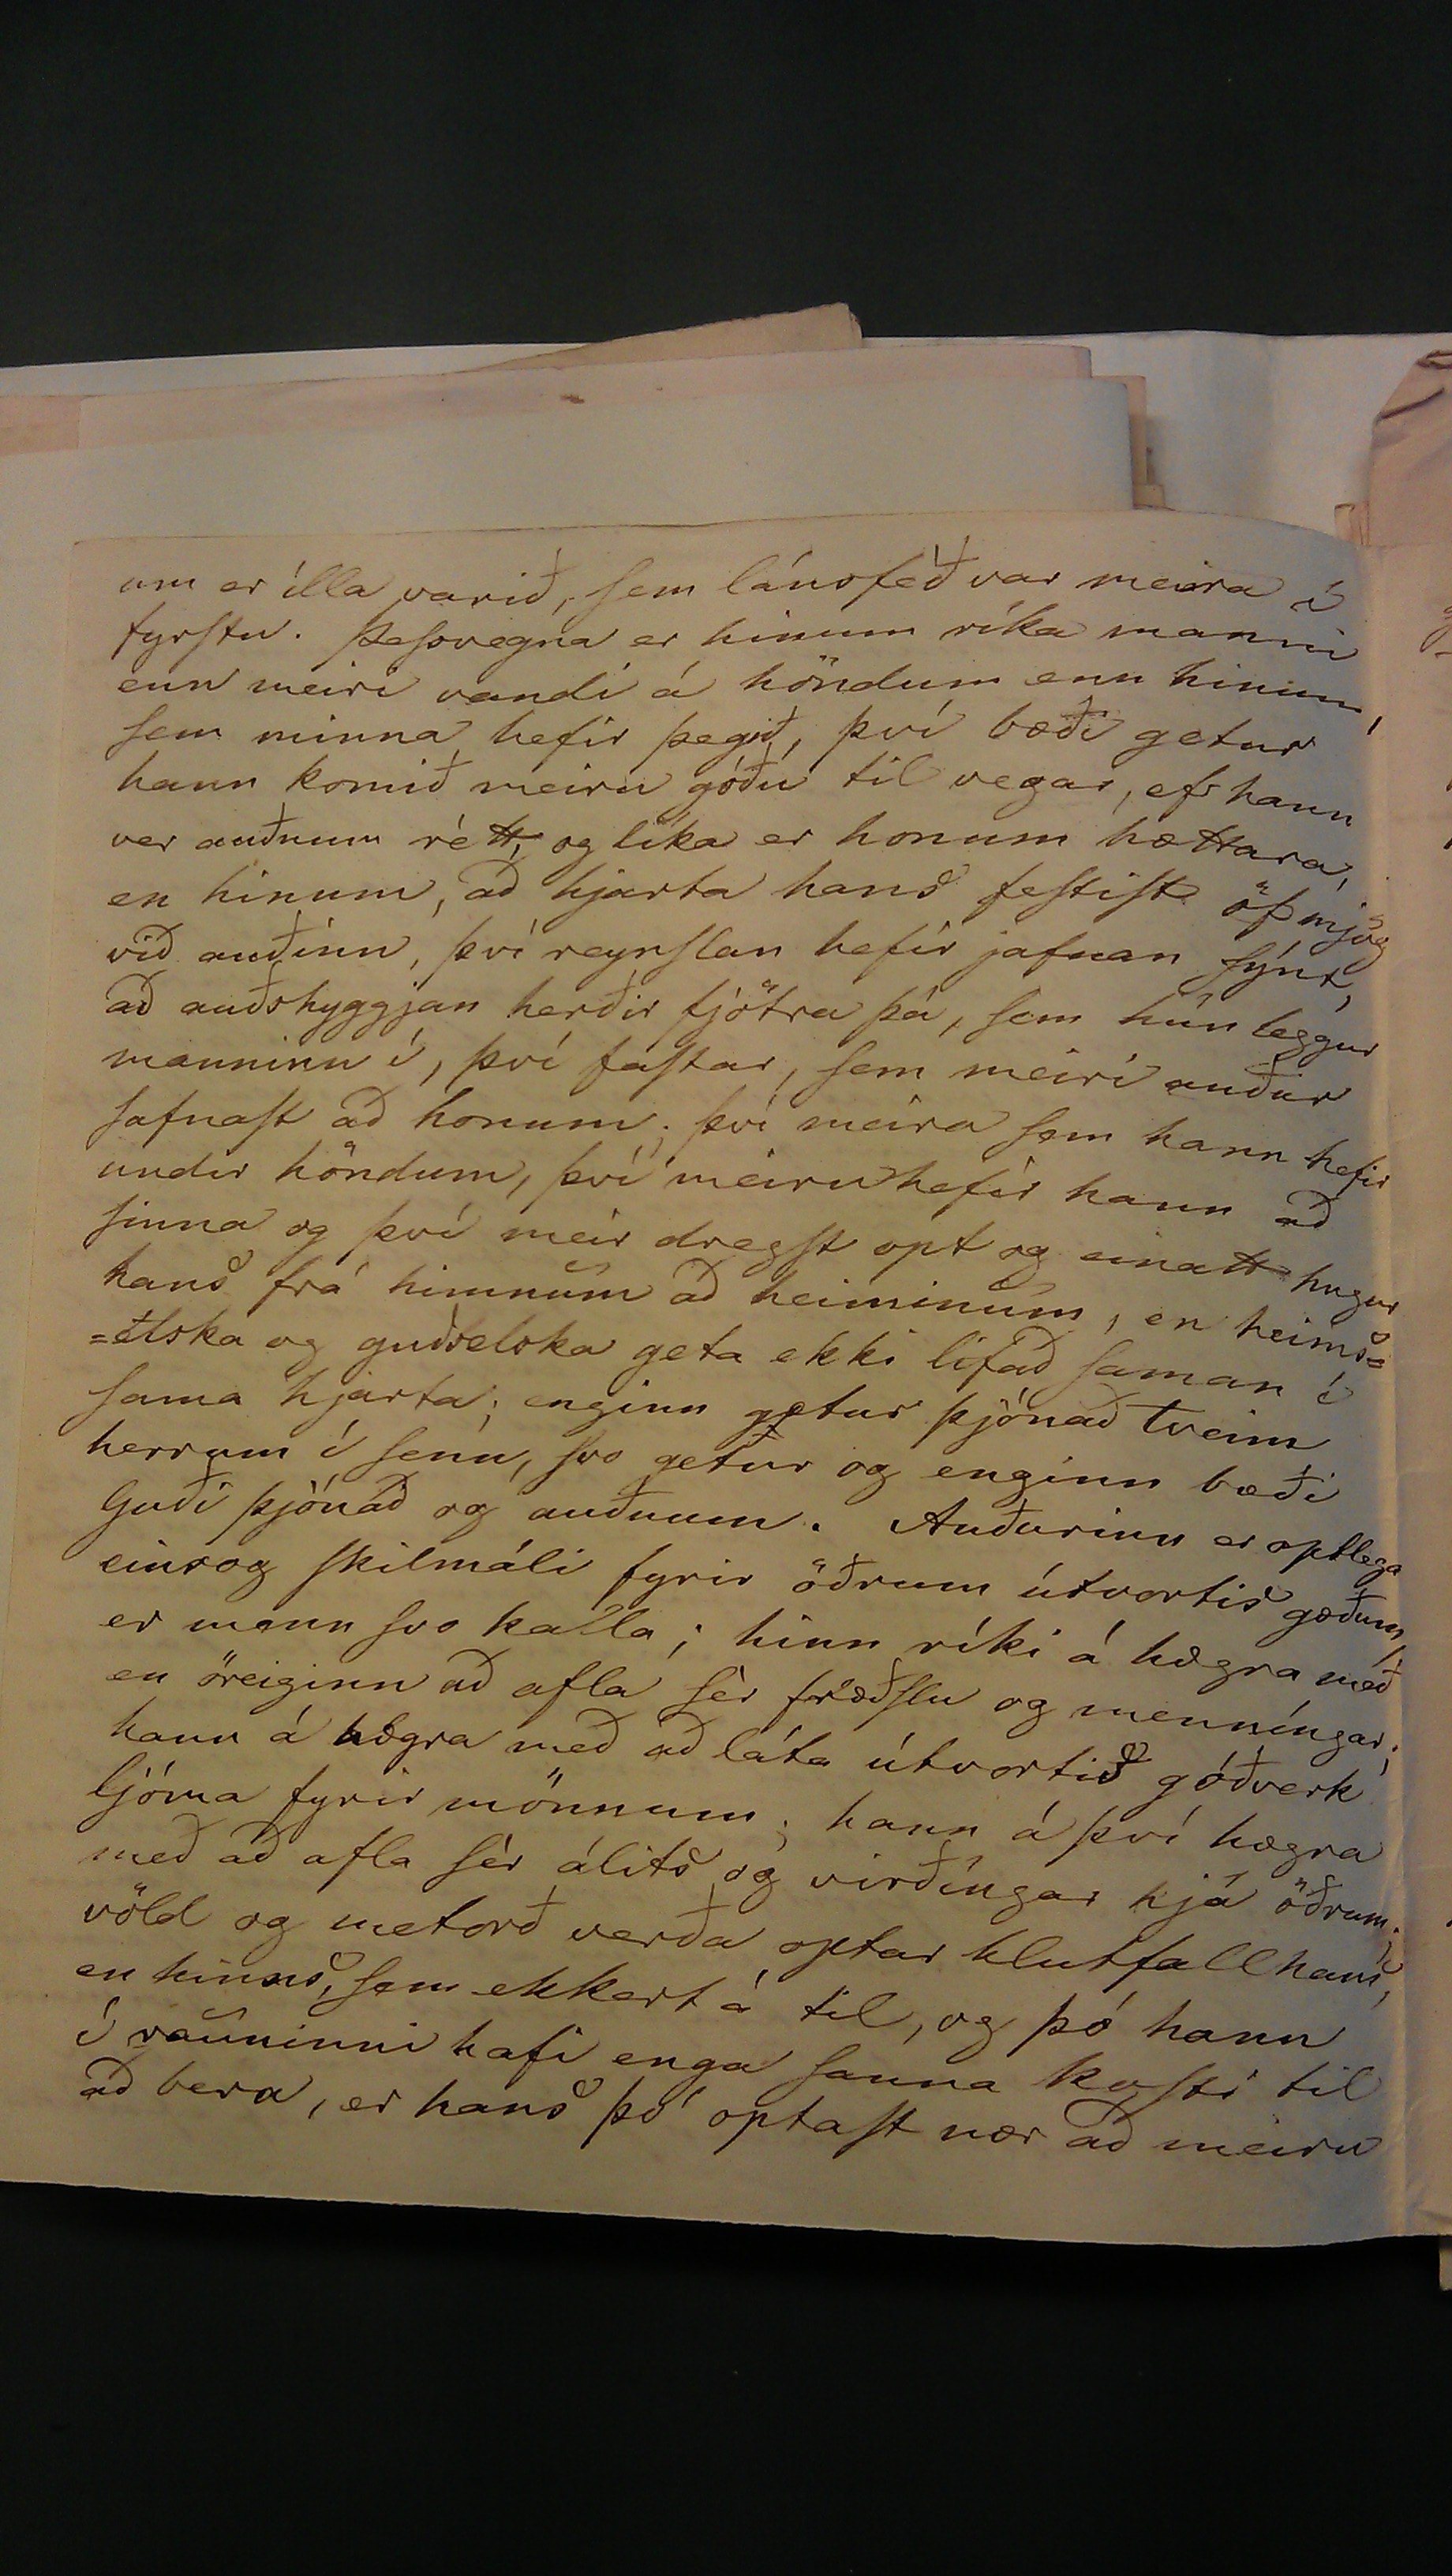 um er illa varið, sem lánsféð var meira í
fyrstu. Þessvegna er hinum ríka manni
enn meiri vandi á höndum enn hinum,
sem minna hefir þegið, því bæði getur
hann komið meiru góðu til vegar, ef hann
ver auðnum rétt, og líka er honum hættara,
en hinum, að hjarta hans festist of mjög
við auðinn, því reynslan hefir jafnan sýnt,
að auðshyggjan herðir fjötra þá, sem hún leggur
manninn í, því fastar, sem meiri auður
safnast að honum; því meira sem hann hefir
undir höndum, því meiru hefir hann að
sinna og því meir dregst opt og einatt hugur
hans frá himnum að heiminum, en heims=
=elska og guðselska geta ekki lifað saman í
sama hjarta; enginn getur þjónað tveim
herrum í senn, svo getur og enginn bæði
Guði þjónað og auðnum. Auðurinn er optlega
einsog skilmáli fyrir öðrum útvortis gæðum,
er menn svo kalla; hinn ríki á hægra með
en öreiginn að afla sér fræðslu og menníngar;
hann á hægra með að láta útvortis góðverk
ljóma fyrir mönnum; hann á því hægra
með að afla sér álits og virðíngar hjá öðrum;
völd og metorð verða optar hlutfall hans,
en hinns, sem ekkert á til, og þó hann
í rauninni hafi enga sanna kosti til
að bera, er hans þó optast nær að meiru